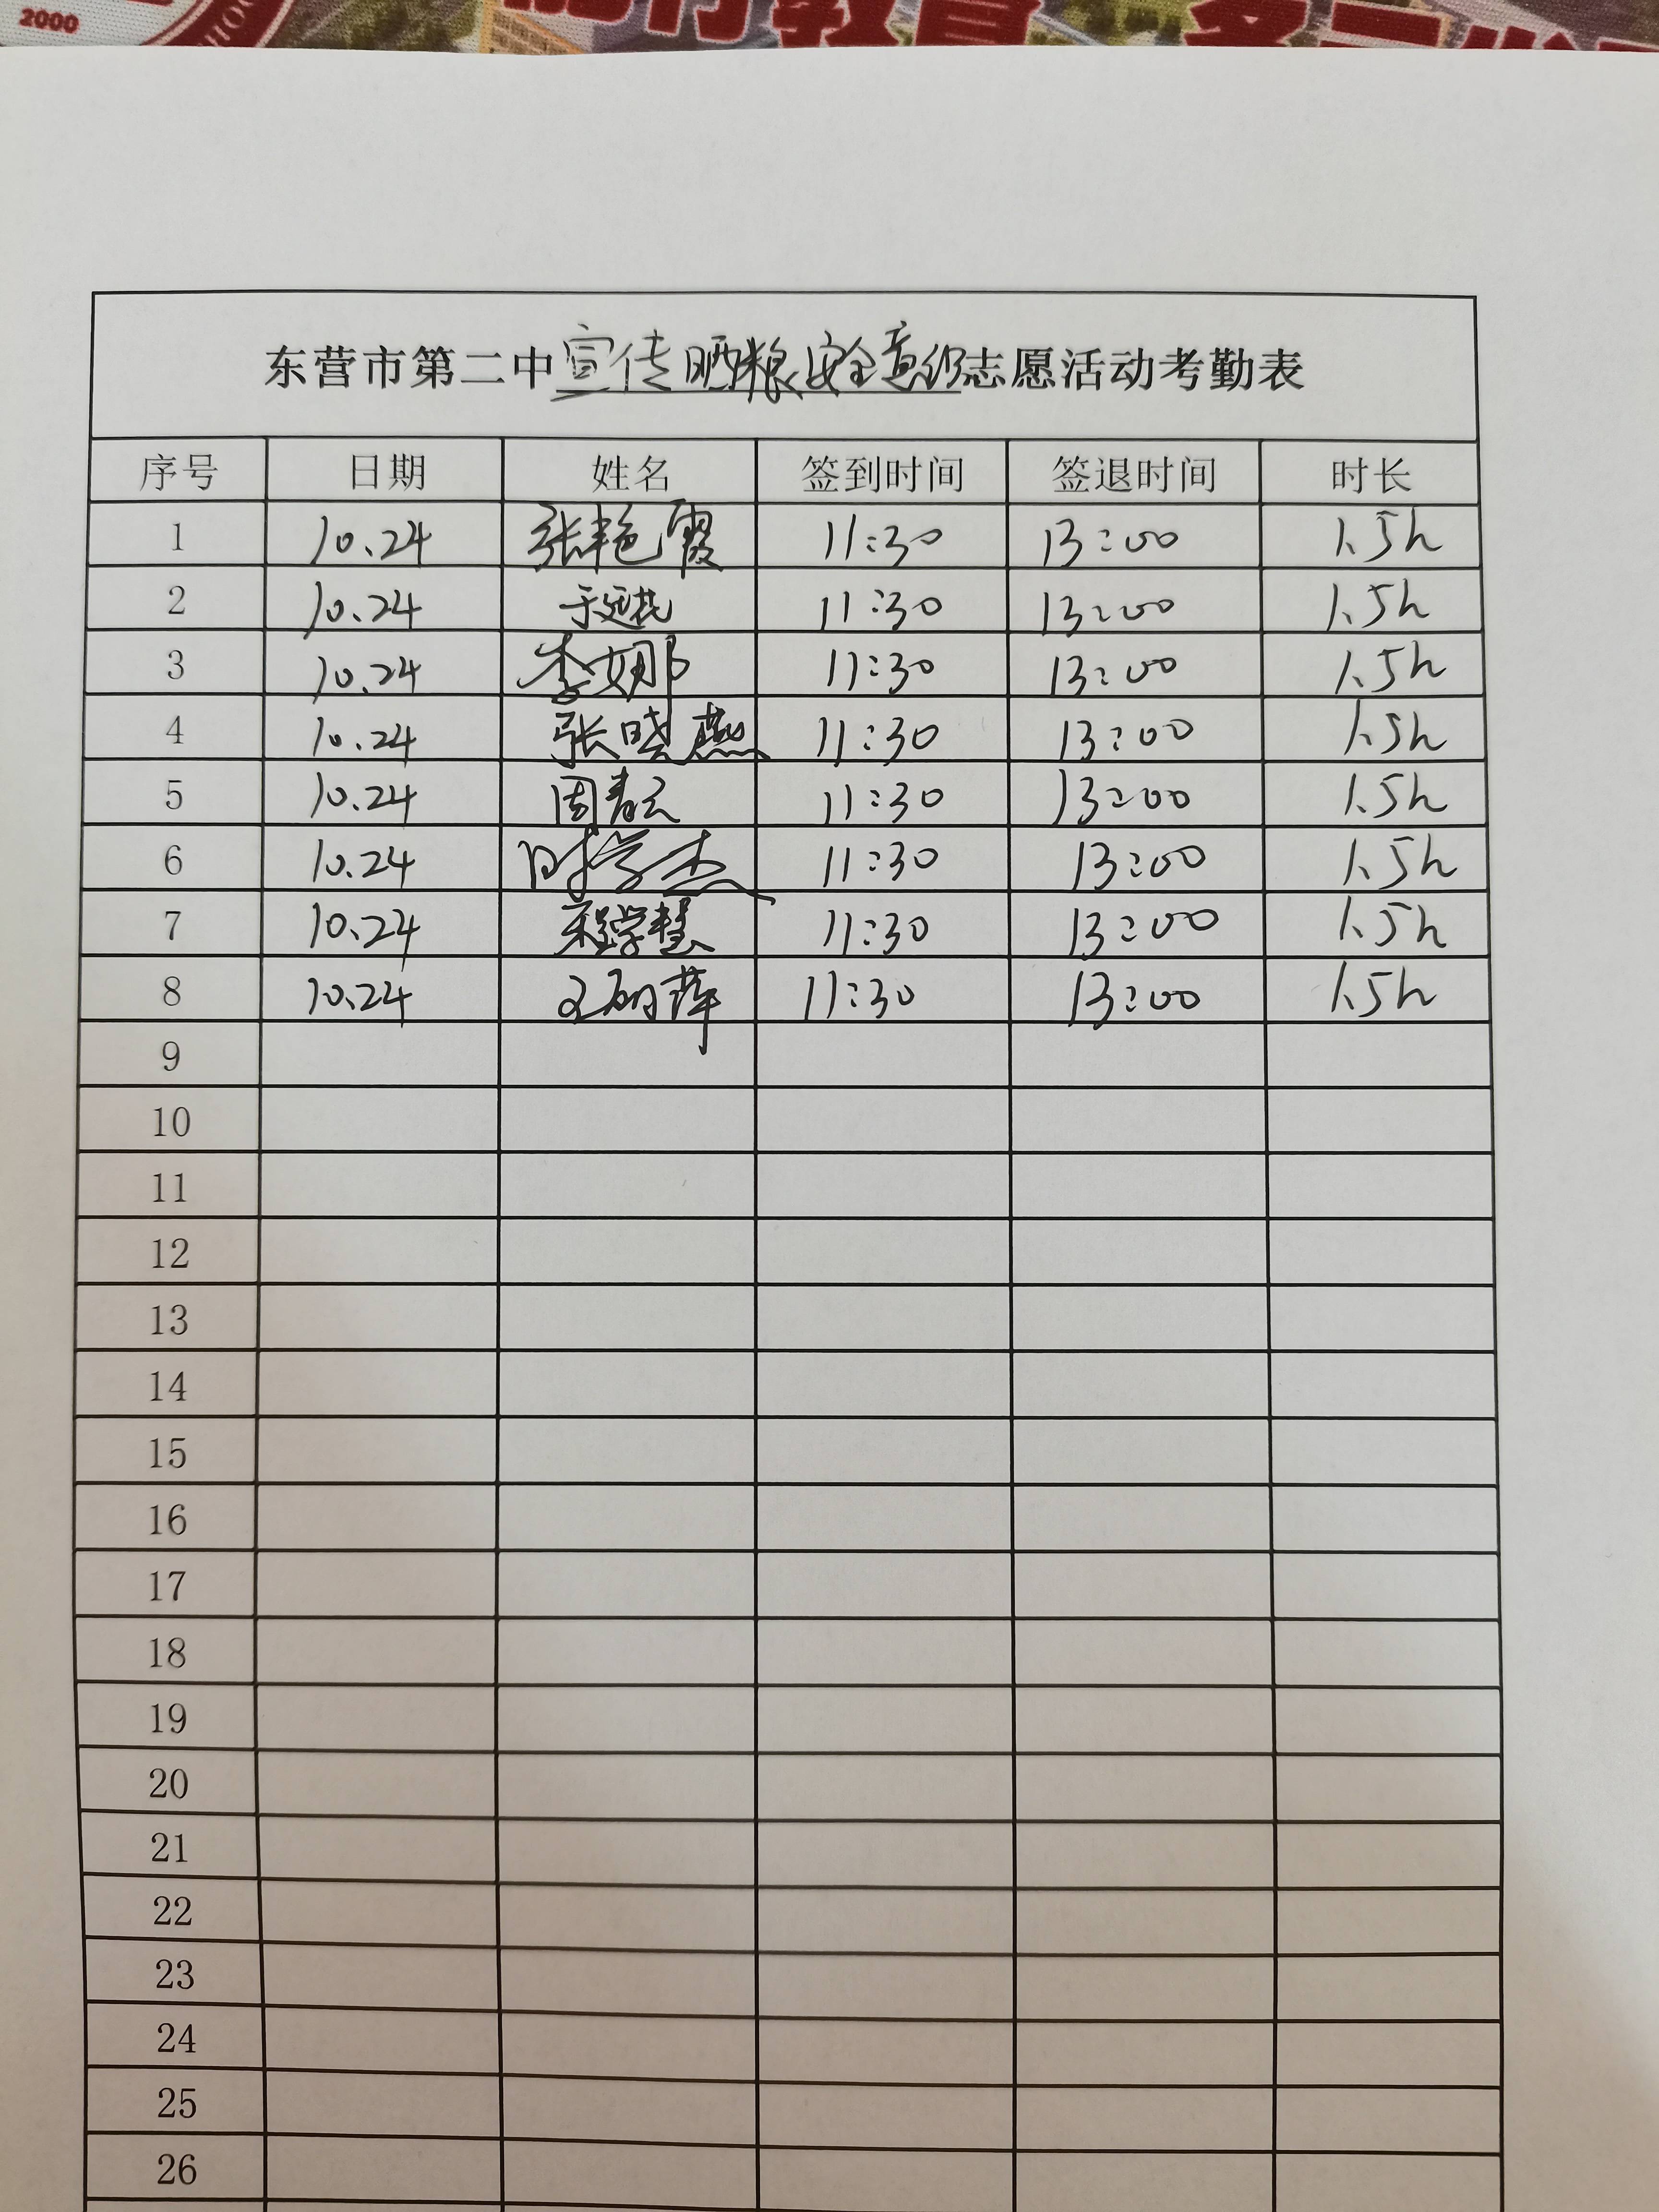 2000
东营市第二中宣传晒粮安全意识志愿活动考勤表
序号 日期 姓名 签到时间 签退时间 时长
1 10.24 张艳霞 11:30 13:00 1.5h
2 10.24 11:30 13:00 1.5h
3 10.24 李娜 11:30 13:00 1.5h
4 10.24 张晓燕 11:30 13:00 1.5h
5 10.24 周青云 11:30 13:00 1.5h
6 10.24 时学杰 11:30 13:00 1.5h
7 10.24 程学慧 11:30 13:00 1.5h
8 10.24 11:30 13:00 1.5h
9
10
11
12
13
14
15
16
17
18
19
20
21
22
23
24
25
26